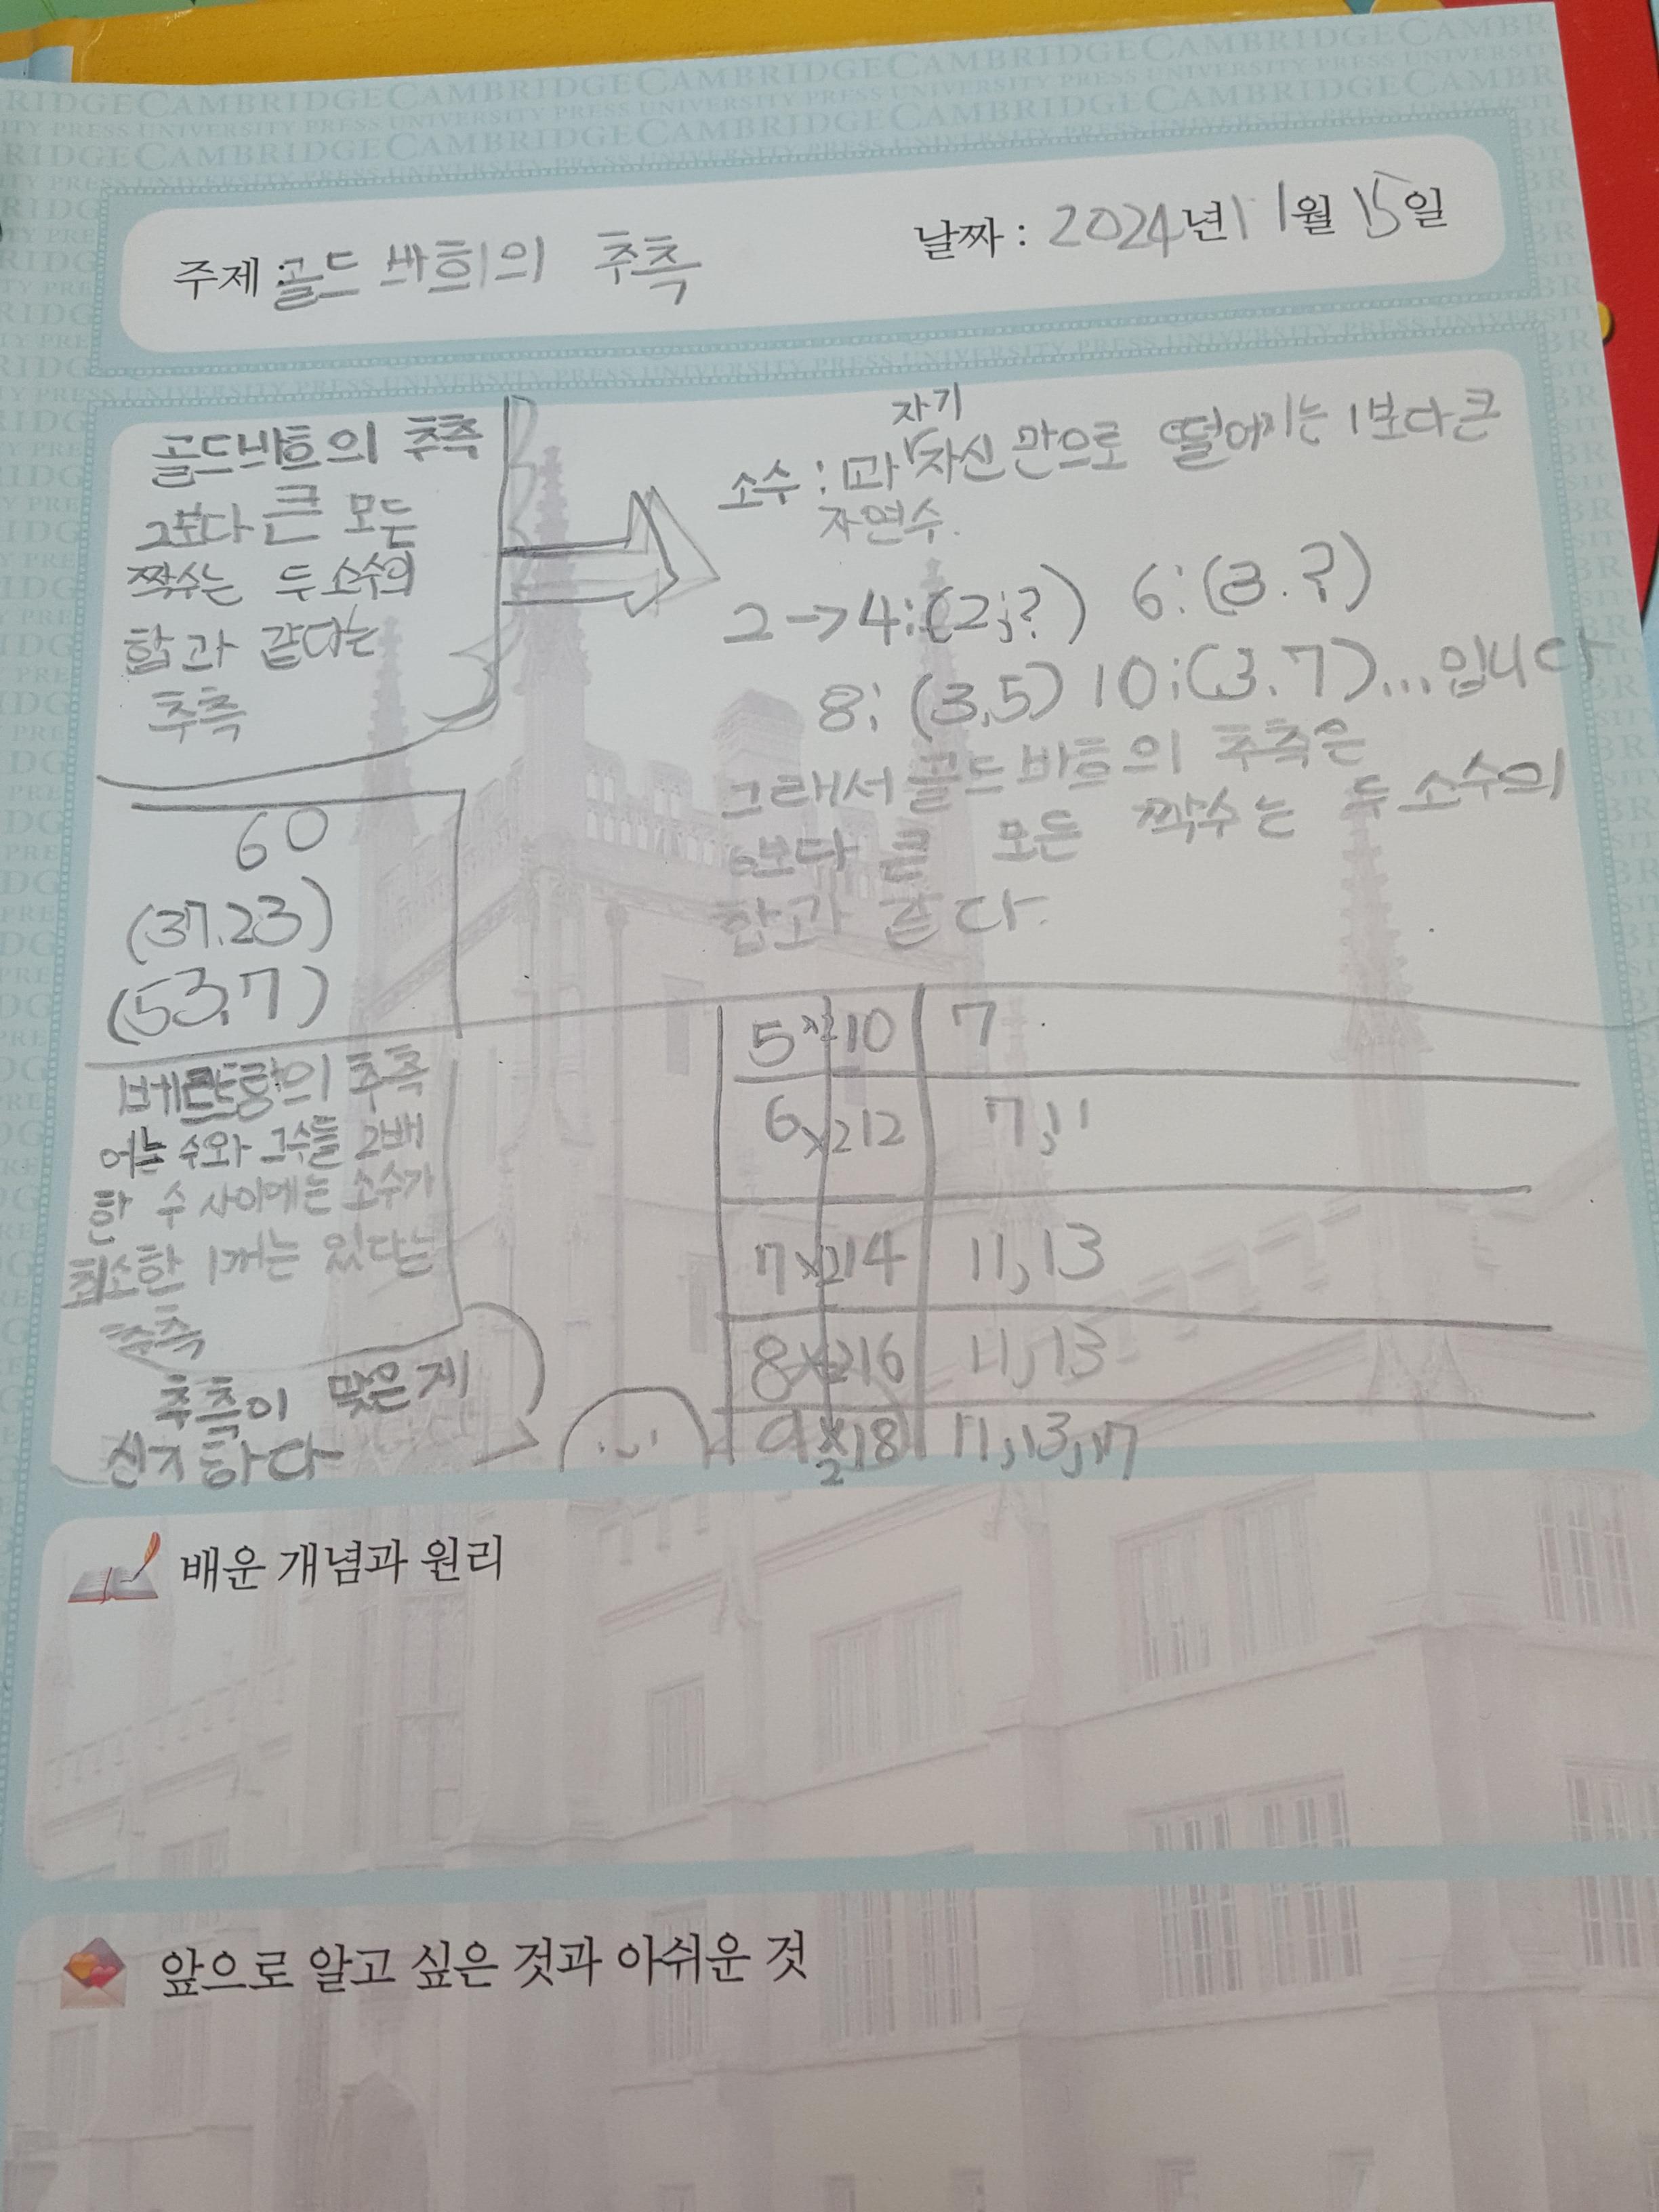 주제 : 골드바흐의 추측
날짜 : 2024년 11월 15일
골드바흐의 추측
2보다 큰 모든
짝수는 두 소수의
합과 같다는
추측
소수 : 1과 자기 자신만으로 떨어지는 1보다 큰
자연수.
2→4:(2;?) 6:(3.?)
8: (3,5) 10:(3.7)...입니다
그래서 골드바흐의 추측은
6보다 큰 모든 짝수는 두 소수의
합과 같다.
60
(37.23)
(53,7)
베르트랑의 추측
어느 수와 그수를 2배
한 수 사이에는 소수가
최소한 1개는 있다는
추측
추측이 맞은게
신기하다
5 ×2 10 7
6 ×2 12 7,11
7 ×2 14 11,13
8 ×2 16 11,13
9 ×2 18 11,13,17
배운 개념과 원리
앞으로 알고 싶은 것과 아쉬운 것
CAMBRIDGE CAMBRIDGE CAMBRIDGE CAMBRIDGE
UNIVERSITY PRESS UNIVERSITY PRESS UNIVERSITY PRESS